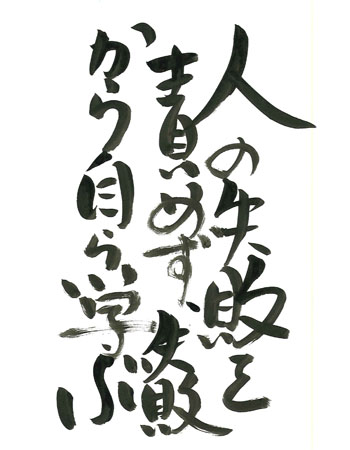 人の失敗を
責めず、失敗
から自ら学ぶ